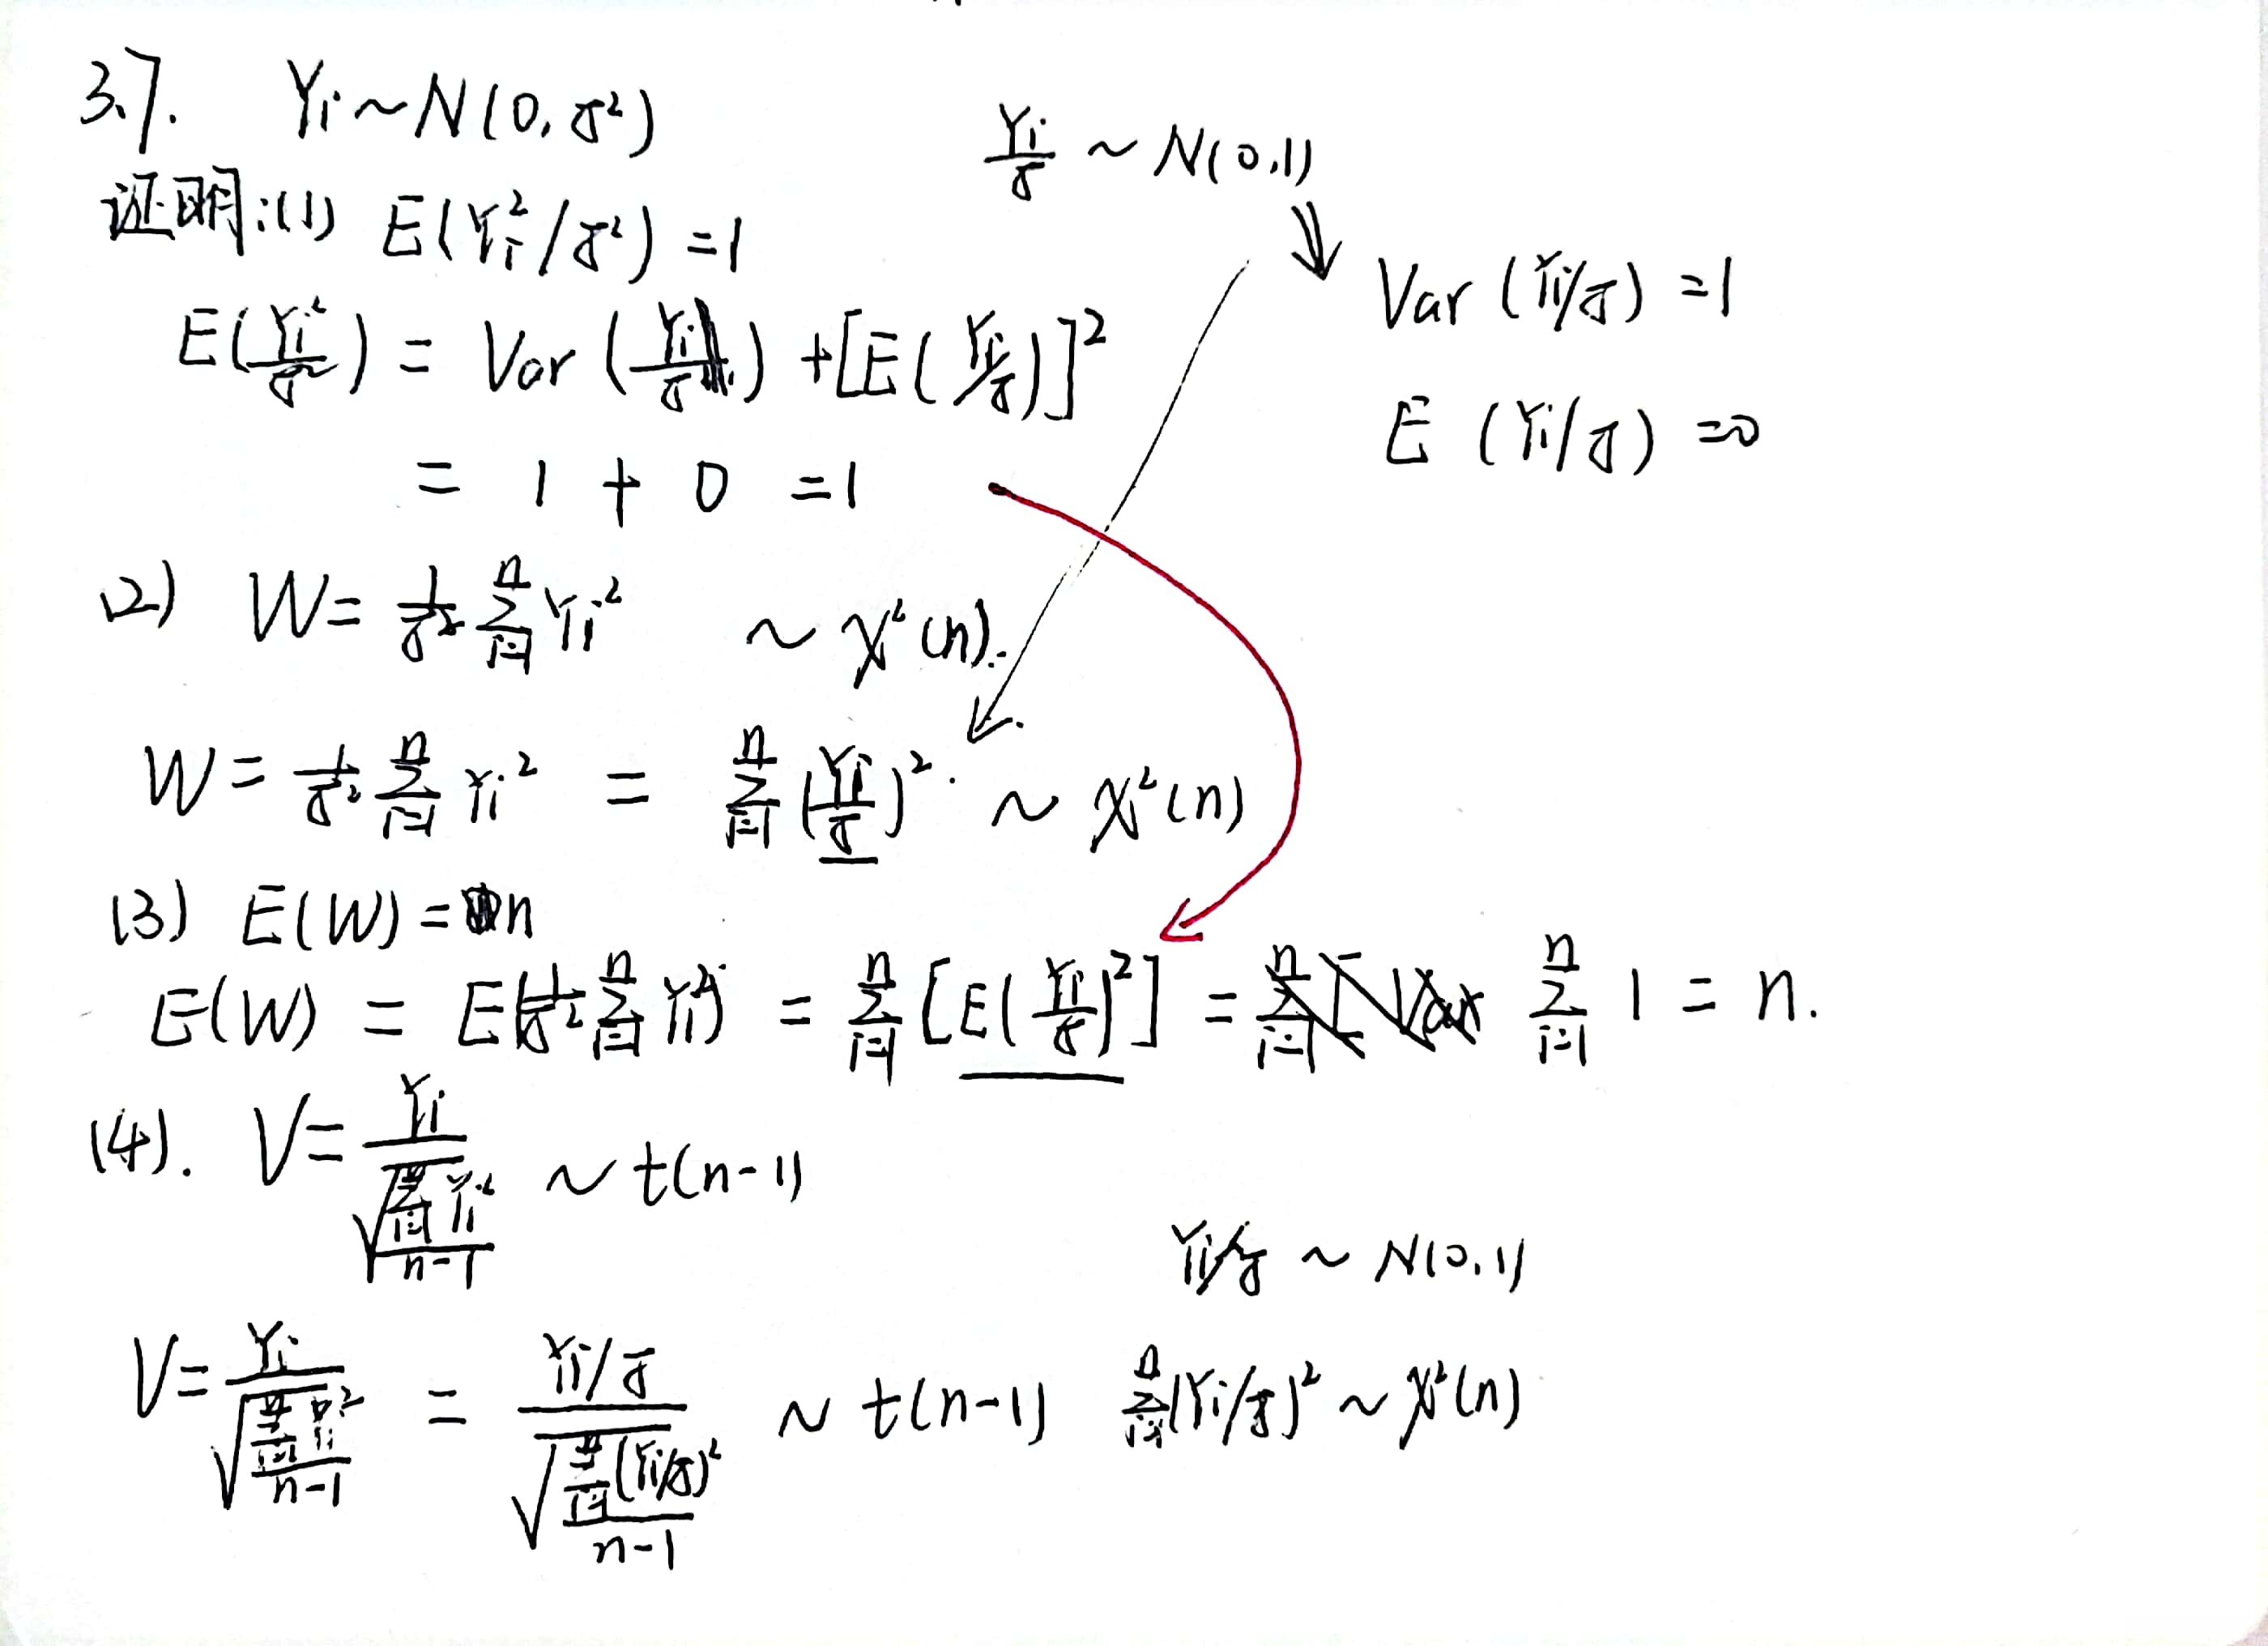 3.7. Yi~N(0,σ²)
Yi/σ ~ N(0,1)
证明:(1) E(Yi²/σ²)=1
Var(Yi/σ)=1
E(Yi²/σ²) = Var(Yi/σ)+[E(Yi/σ)]²
E(Yi/σ)=0
= 1 + 0 =1
(2) W= 1/σ² ∑_{i=1}^{n} Yi² ~ χ²(n).
W= 1/σ² ∑_{i=1}^{n} Yi² = ∑_{i=1}^{n} (Yi/σ)² ~ χ²(n)
(3) E(W)=n
E(W) = E(1/σ² ∑_{i=1}^{n} Yi²) = ∑_{i=1}^{n} [E(Yi/σ)²] = ∑_{i=1}^{n} 1 = n.
(4). V= Yi / √(∑_{i=1}^{n} Yi² / n-1) ~ t(n-1)
Yi/σ ~ N(0,1)
V= Yi / √(∑_{i=1}^{n} Yi² / n-1) = Yi/σ / √(∑_{i=1}^{n} (Yi/σ)² / n-1) ~ t(n-1)
∑_{i=1}^{n} (Yi/σ)² ~ χ²(n)